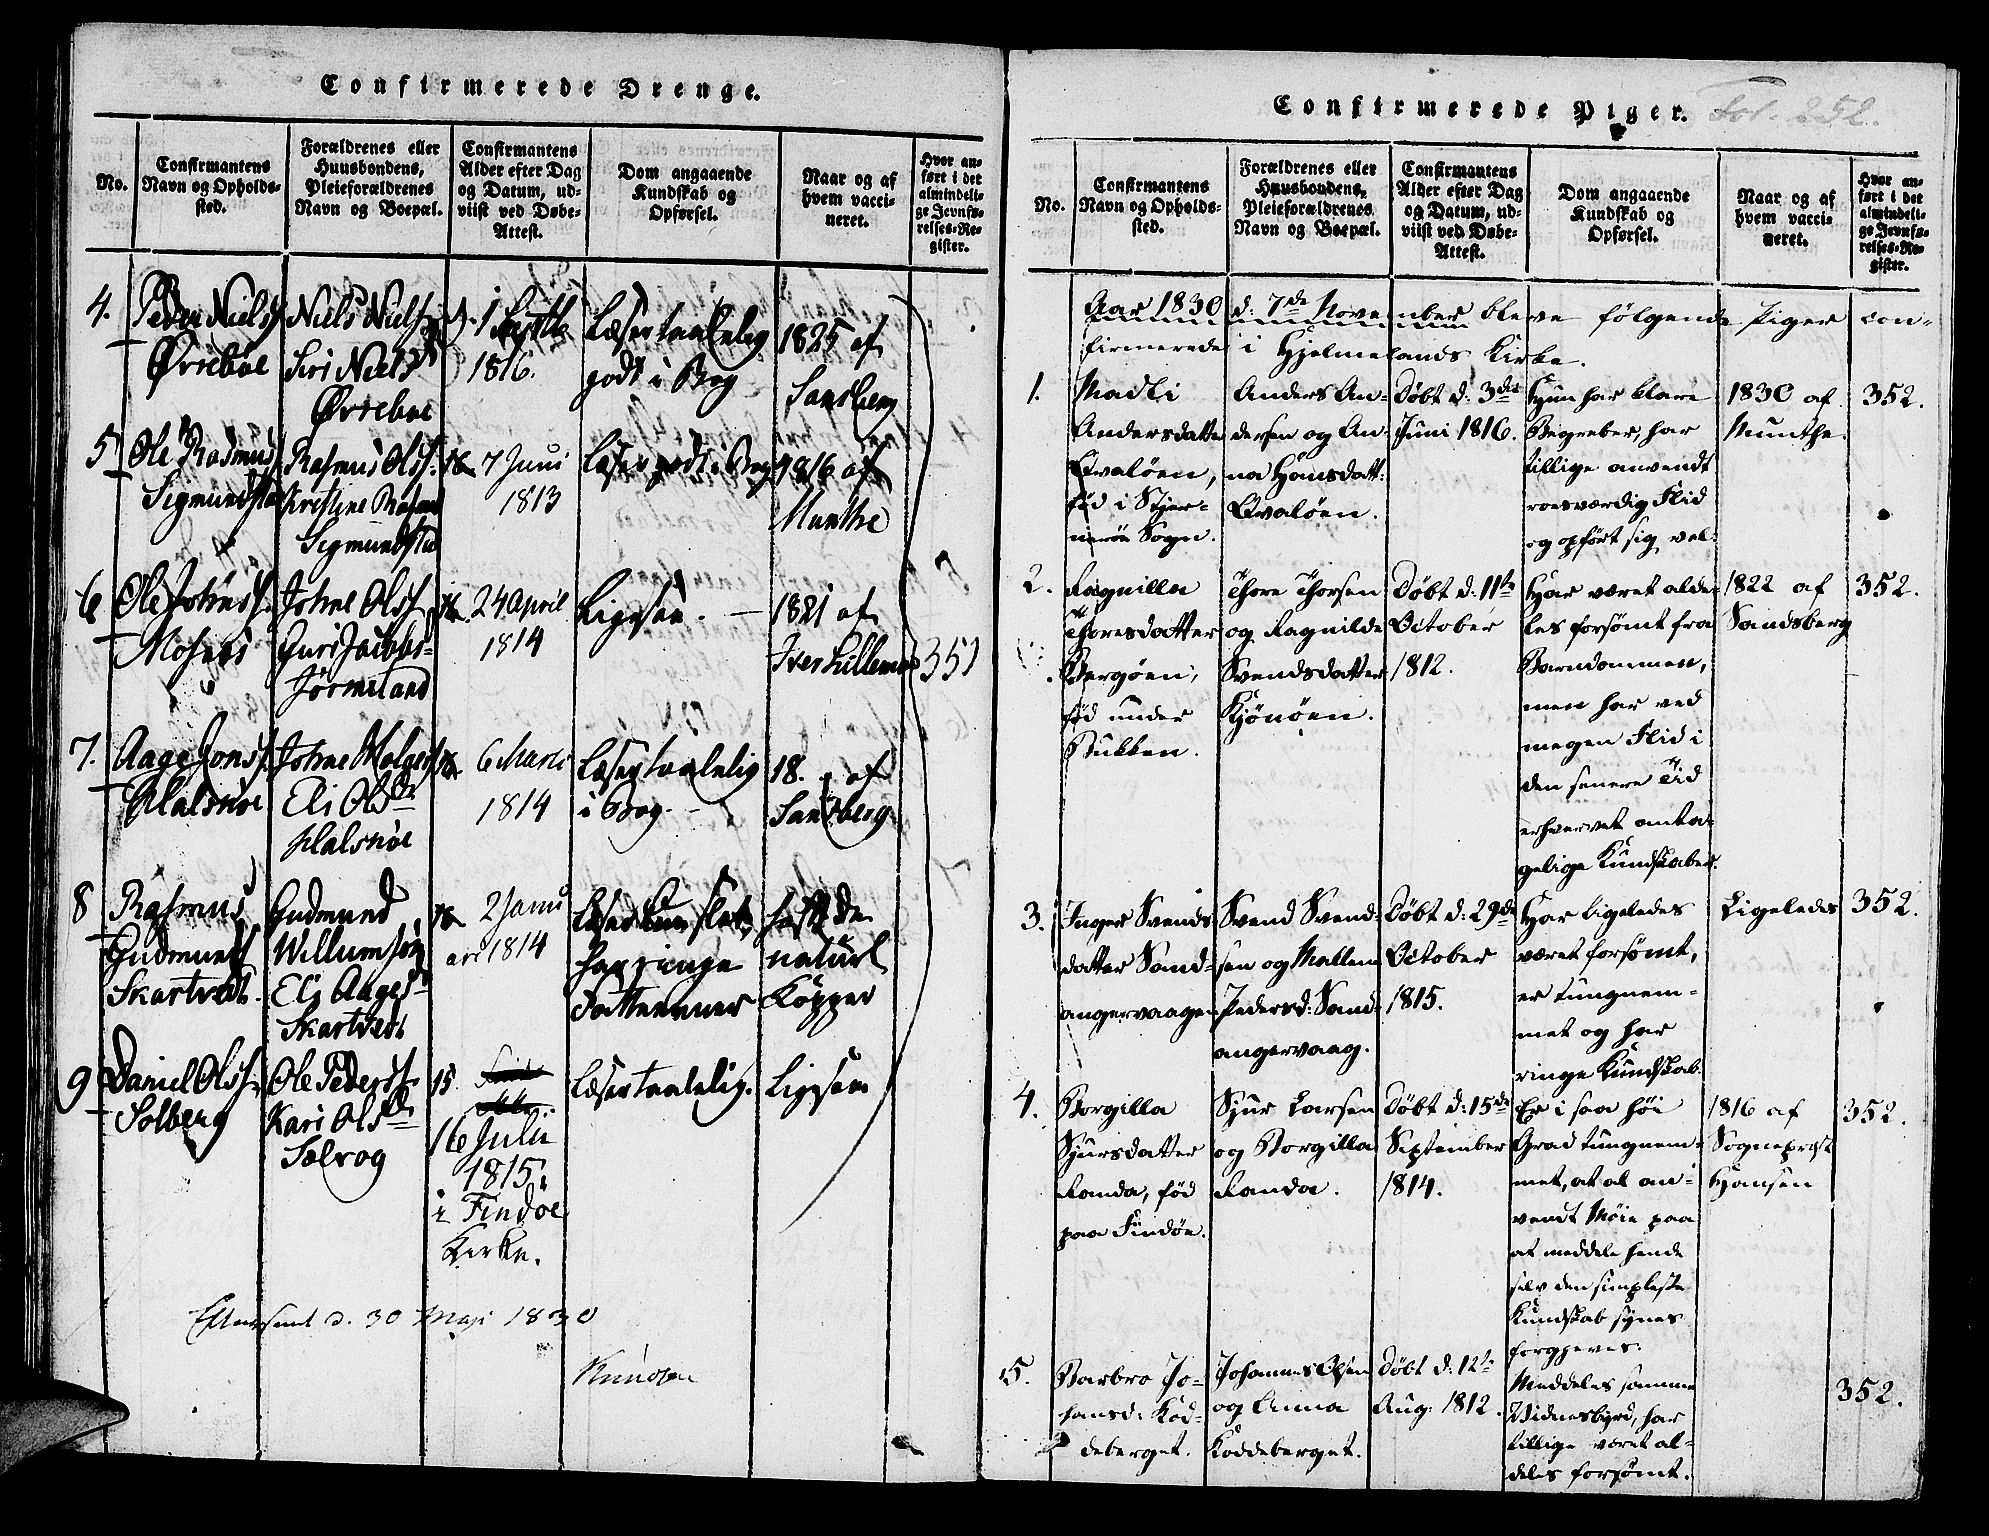 Confirmerede Drenge.
No.
Confirmantens
Navn og Opholds-
sted.
Forældrenes eller
Huusbondens,
Pleieforældrenes
Navn og Boepæl.
Confirmantens
Alder efter Dag
og Datum, ud-
viist ved Døbe-
Attest.
Dom angaaende
Kundskab og
Opførsel.
Naar og af
hvem vacci-
neret.
Hvor an-
ført i det
almindeli-
ge Jevnfø-
relses-Re-
gister.
4.
Peder Niels
Ørreboe
Niels Niels
Siri Niels
Ørreboe
1
1816.
Læser taalelig
godt i Bog
1825 af
Sandberg
5
Ole Rasmus
Sigmundstad
Rasmus Olss:
Kristine Rasm
Sigmundstad
16
7 Juni
1813
Læser godt i Bog
1816 af
Munthe
6
Ole Johnss
Mosnes
Johne Olss
Guri Jacobs-
Jørmeland
16.
24 April
1814
Ligesaa.
1821 af
Iver Lillem
351
7.
Aage Jonss.
Halsnøe
Johne Holgers
Eli Olsdr
Halsnøe
16
6 Marts
1814
Læser taalelig
i Bog.
18. af
Sandberg
8
Rasmus
Gudmunds
Skartveit.
Gudmund
Willumsøn
Eli Aages
Skartveit
16
2 Janu
ari 1814
Læser kun slet,
har ringe
Fattenemmer
haft de
naturl
Kopper
9
Daniel Olss
Solberg
Ole Pederss
Kari Olsdr
Sælvog
15
16 Juli
1815.
i Findoe
Kirke.
Læser taalelig.
Ligesaa
Efterseet d. 30 Maji 1830
Knudsen
Confirmerede Piger.
Fol. 252.
No.
Confirmantens
Navn og Opholds-
sted.
Forældrenes eller
Huusbondens,
Pleieforældrenes
Navn og Boepæl.
Confirmantens
Alder efter Dag
og Datum, ud-
viist ved Døbe-
Attest.
Dom angaaende
Kundskab og
Opførsel.
Naar og af
hvem vacci-
neret.
Hvor an-
ført i det
almindeli-
ge Jevnfø-
relses-Re-
gister.
Aar 1830 d: 7de November bleve følgende Piger con-
firmerede i Hjelmelands Kirke.
1.
Madli
Andersdatter
Qvaløen,
fød i Stjer-
nerøe Sogn.
Anders An-
dersen og An-
na Hansdatt:
Qvaløen.
Døbt d: 3de
Juni 1816.
Hun har klare
Begreber, har
tillige anvendt
roesværdig Flid
og opført sig vel.
1830 af
Munthe.
352.
2.
Ragnilla
Thoresdatter
Bergøen,
fød under
Bukken.
Thore Thorsen
og Ragnilde
Svendsdatter
Kjønøen.
Døbt d: 11te
October
1812.
Har været alde-
les forsømt fra
Barndommen,
men har ved
megen Flid i
den senere Tid
erhvervet anta-
gelige Kundskaber.
1822 af
Sandsberg
352.
3.
Inger Svends
datter Sand-
angervaagen
Svend Svend-
sen og Mallene
Pedersd: Sand-
angervaag.
Døbt d: 29de
October
1815.
Har ligeledes
været forsømt,
er tungnem-
met og har
ringe Kundskab.
Ligeledes
352.
4.
Borgilla
Sjursdatter
Randa, fød
paa Findøe.
Sjur Larsen
og Borgilla
Randa.
Døbt d: 15de
September
1814.
Er i saa høi
Grad tungnem-
met, at al an-
vendt Møie paa
at meddele hende
selv den simpleste
Kundskab synes
forgjeves.
1816 af
Sogneprest
Hansen
352.
5.
Barbro Jo-
hansd: Kod-
deberget.
Johannes Olsen
og Anna
Koddeberget.
Døbt d: 12te
Aug: 1812.
Meddeles samme
Vidnesbyrd, har
tillige været al-
deles forsømt.
352.